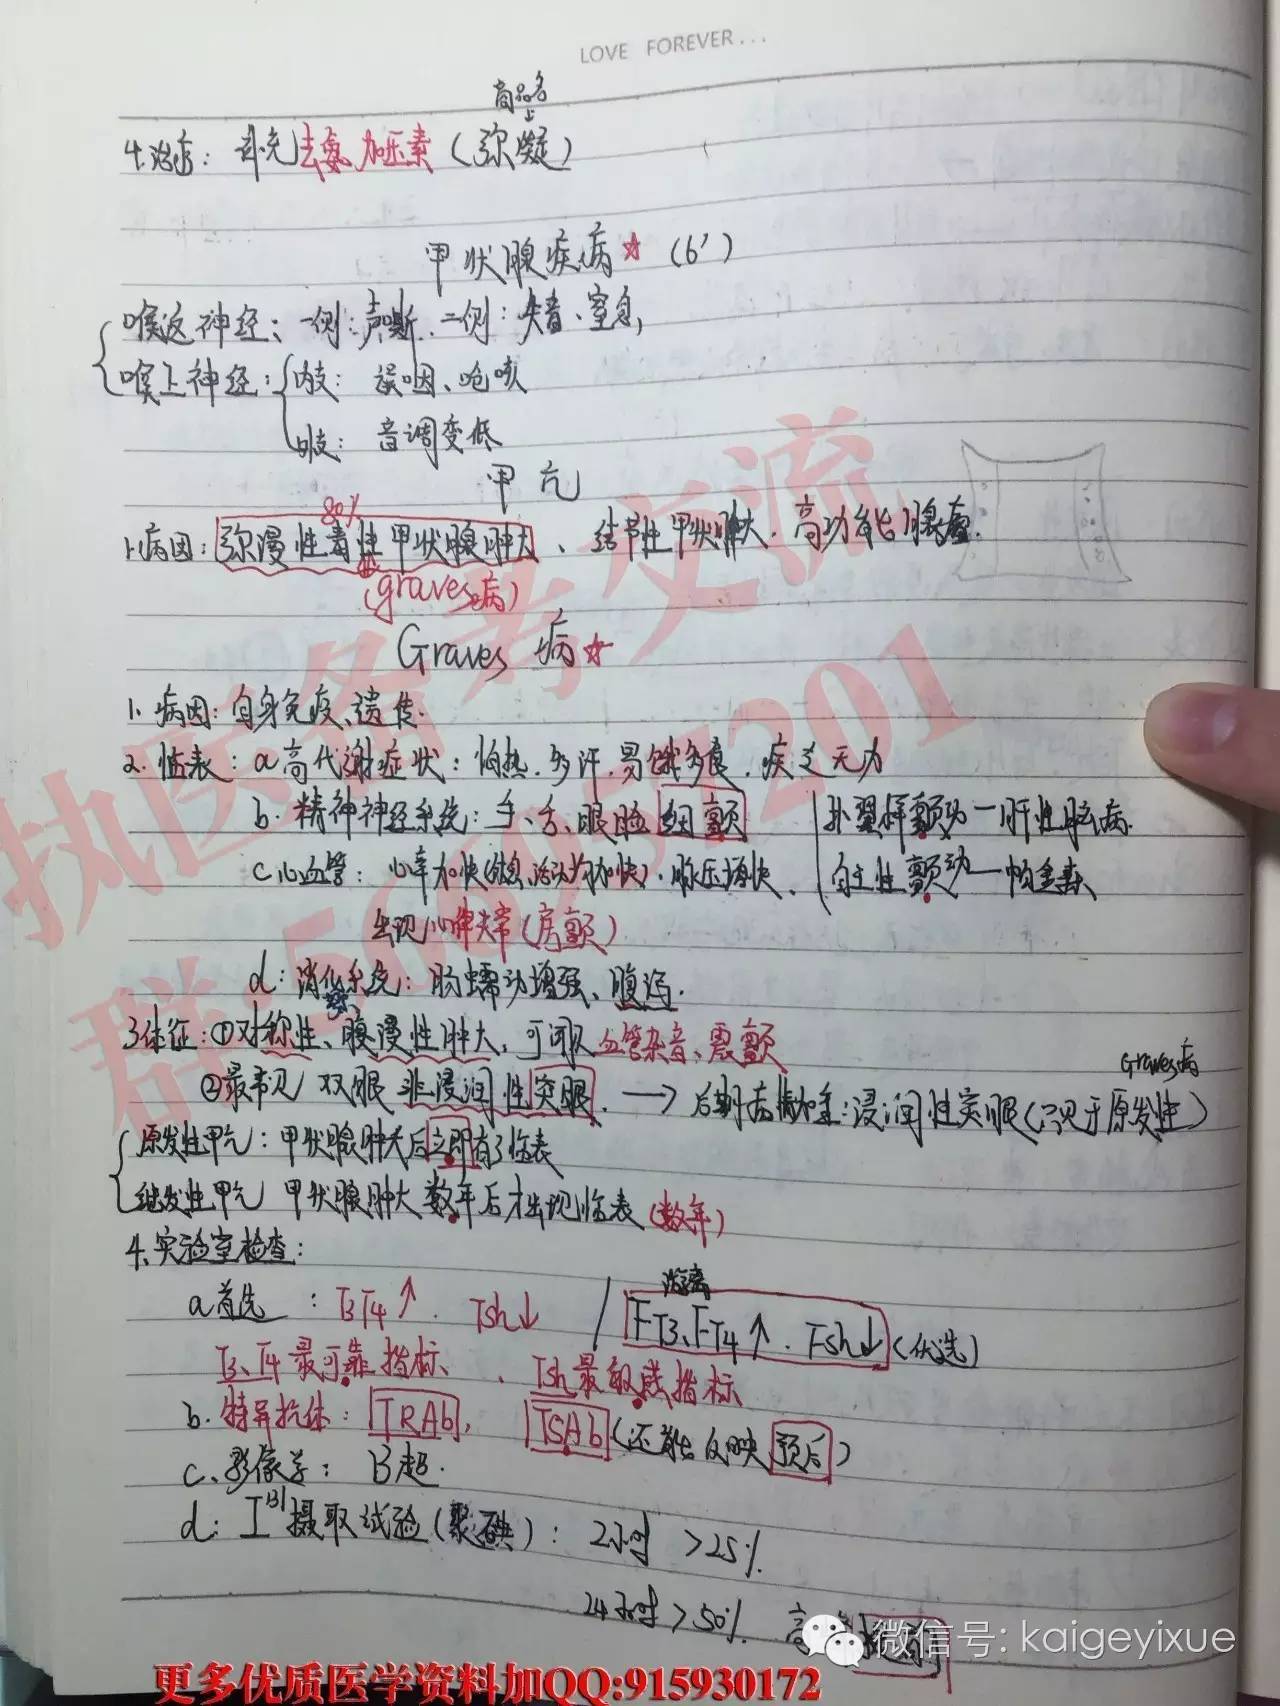 LOVE FOREVER...
商品名
4.治疗：补充去氨加压素（弥凝）
甲状腺疾病☆（6'）
喉返神经：一侧：声嘶.二侧：失音、窒息,
喉上神经：内支：误咽、呛咳
外支：音调变低
甲亢
80%
1.病因：弥漫性毒性甲状腺肿大、结节性甲状腺肿大.高功能腺瘤.
(graves病)
Graves 病☆
1.病因：自身免疫、遗传.
2.临表：a高代谢症状：怕热.多汗.易饿多食.疲乏无力
b.精神神经系统：手、舌、眼睑细颤 扑翼样颤动—肝性脑病.
c心血管：心率加快(休息、活动均加快).脉压增快. 自主性颤动—帕金森
出现心律失常（房颤）
d：消化系统：肠蠕动增强、腹泻.
3体征：①对称性、弥漫性肿大，可闻及血管杂音、震颤
Graves病
②最常见 双眼 非浸润性突眼.→后期病情加重：浸润性突眼（只见于原发性）
原发性甲亢：甲状腺肿大后立即有了临表
继发性甲亢 甲状腺肿大 数年后才出现临表（数年）
4.实验室检查：
游离
a首选：T3T4↑. Tsh↓ / FT3、FT4↑.Tsh↓（优选）
T3、T4最可靠指标、Tsh最敏感指标
b.特异抗体：TRAb， TSAb（还能反映预后）
c.影像学：B超.
d：I131摄取试验（聚碘）：2小时 >25%.
24小时>50%. 高
微信号: kaigeyixue
更多优质医学资料加QQ:915930172
执医备考交流